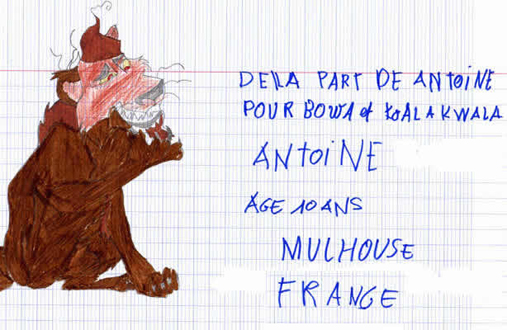 DELLA PART DE ANTOINE
POUR BOWA et KOALAKWALA
ANTOINE
AGE 10 ANS
MULHOUSE
FRANCE